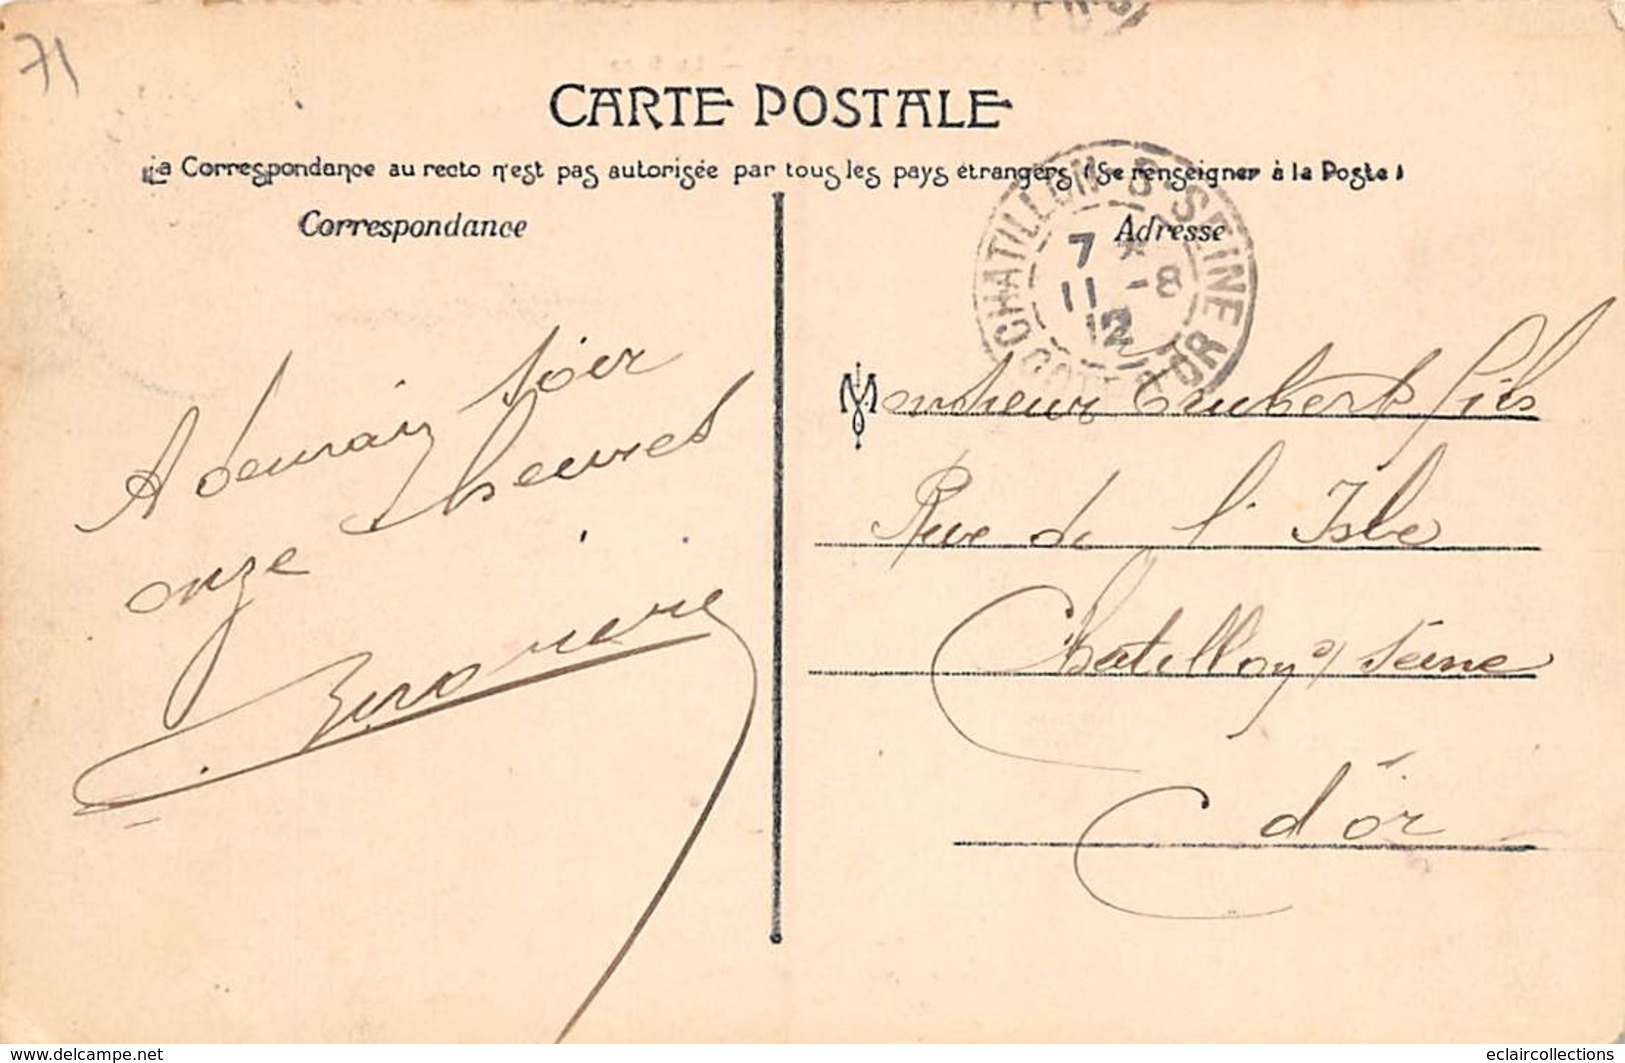 71
CARTE POSTALE
La Correspondance au recto n'est pas autorisée par tous les pays étrangers (Se renseigner à la Poste)
Correspondance
Adresse
CHATILLON S. SEINE
COTE D'OR
7 *
11 -8
12
A demain soir
onze heures
Monsieur Imbert fils
Rue de l'Isle
Chatillon s/ Seine
C d'or
www.delcampe.net
eclaircollections